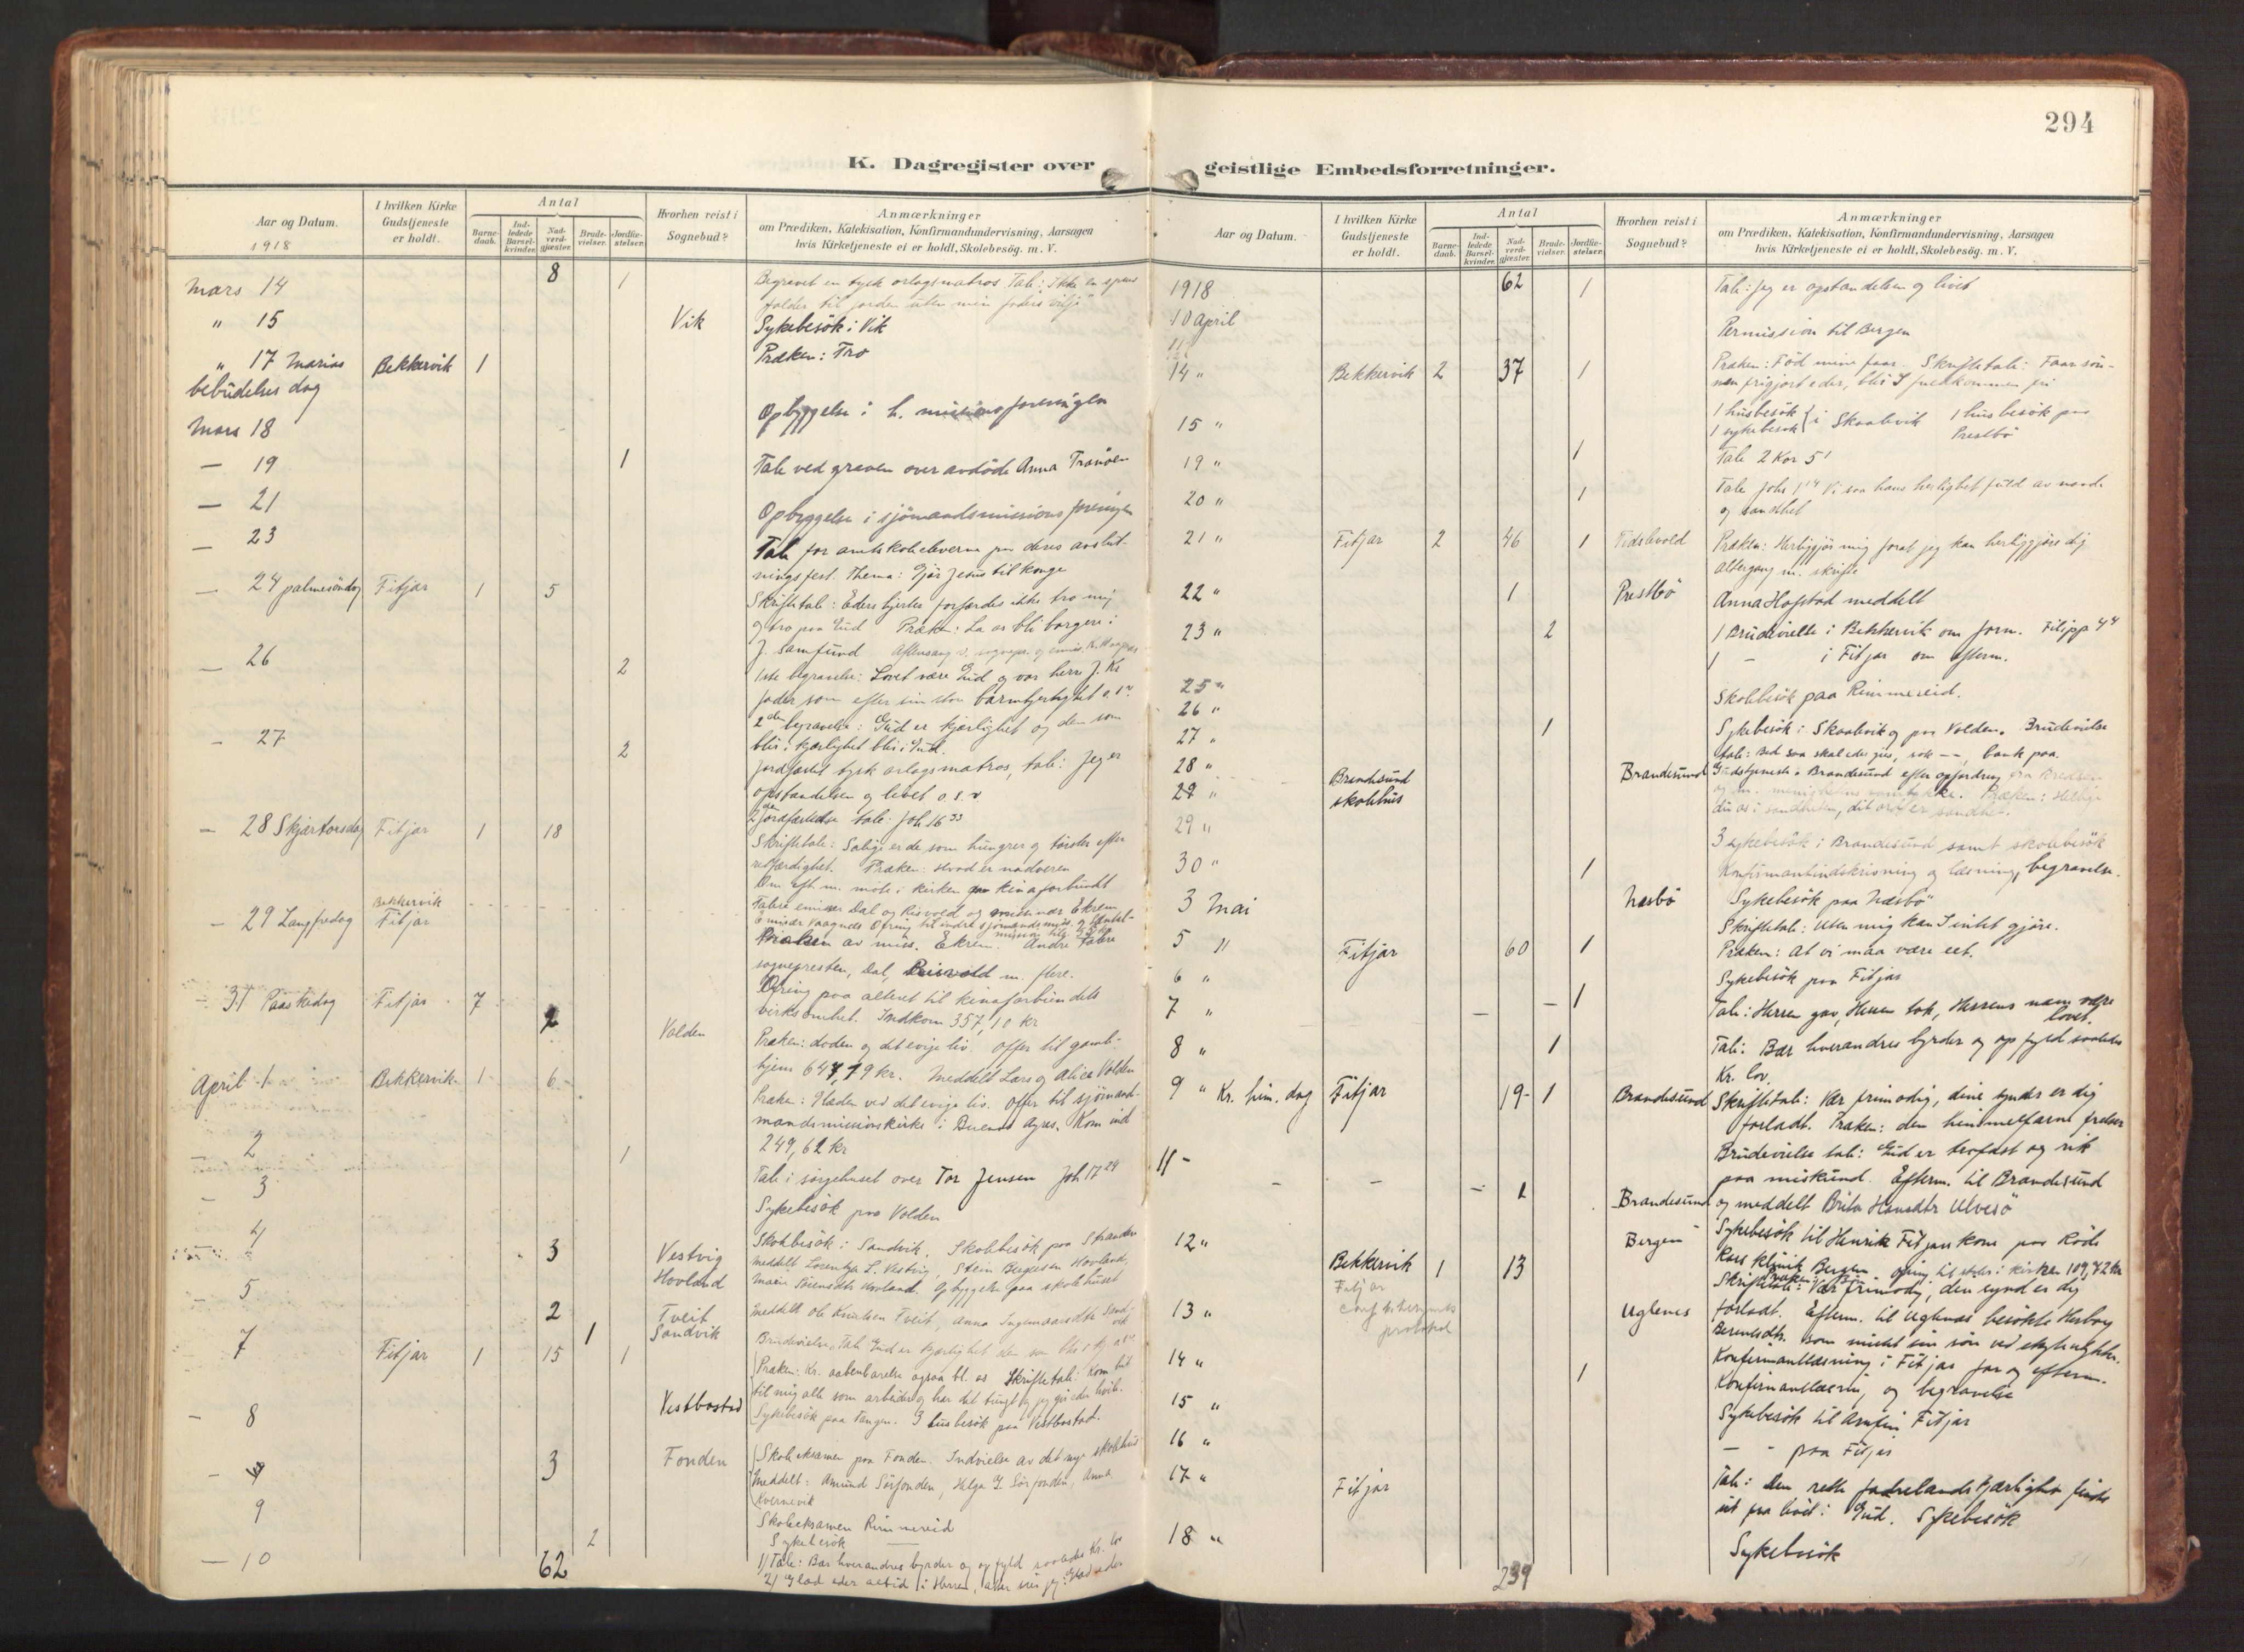 294
K. Dagregister over
geistlige Embedsforretninger.
Aar og Datum.
1918
I hvilken Kirke
Gudstjeneste
er holdt.
Antal
Barne-
daab.
Ind-
ledede
Barsel-
kvinder.
Nad-
verd-
gjæster.
Brude-
vielser.
Jordfæ-
stelser.
Hvorhen reist i
Sognebud?
Anmærkninger
om Prædiken, Katekisation, Konfirmandundervisning, Aarsagen
hvis Kirketjeneste ei er holdt, Skolebesøg. m. V.
Mars 14 8 1 Begravet en tysk orlogsmatros Tale: Ikke en spurv
falder til jorden uten min faders vilje
" 15 Vik Sykebesök i Vik
" 17 Marias Bekkervik 1 Præken: Tro
bebudelses dag
Mars 18 Opbyggelse i h. missionsforeningen
— 19 1 Tale ved graven over avdöde Anna Tranöen
— 21 Opbyggelse i sjömandsmissionsforeningen
— 23 Tale for amtskoleeleverne paa deres avslut-
ningsfest. Thema: Gjör Jesus til konge
— 24 palmesöndag Fitjar 1 5 Skriftetale: Eders hjerter forfærdes ikke tro mig
og tro paa Gud Præken: La os bli borgere i
J. samfund Aftensang v. sognepr. og emis.
— 26 2 1ste begravelse: Lovet være Gud og vor herre J. Kr.
fader som efter sin store barmhjertighet o.s.v.
2den begravelse: Gud er kjærlighet og den som
blir i kjærlighet blir i Gud.
— 27 2 jordfæstet tysk orlogsmatros, tale: Jeg er
opstandelsen og livet o.s.v
2den jordfæstelse tale: Joh 16 33
— 28 Skjærtorsdag Fitjar 1 18 Skriftetale: Salige er de som hungrer og törster efter
retfærdighet. Præken: Hvad er nadveren
Om eft.m. möte i kirken paa kinaforbundt
Talere emisær Dal og Risvold og missionær Ekrem
— 29 Langfredag Bekkervik
Fitjar
Præken av miss. Ekrem. Andre talere
sognepresten, Dal, Risvold m. flere.
Ofring paa alteret til kinaforbundets
virksomhet. Indkom 357,10 kr
— 31 Paaskedag Fitjar 7 2 Volden Præken: döden og det evige liv. Offer til gamle-
hjem 647,79 kr. Meddelt Lars og Alice Volden
April 1 Bekkervik 1 6 Præken: Glæden ved det evige liv. Offer til sjömand-
mandsmissionskirke i Buenos Ayres. Kom ind
249,62 kr
— 2 1 Tale i sörgehuset over Tor Jensen Joh 17 24
— 3 Sykebesök paa Volden
4 3 Vestvig Skolebesök i Sandvik. Skolebesök paa Strande
Hovland meddelt L. Vestvig, Stein Birgersen Hovland,
Hovland. Opbyggelse paa skolehuset.
— 5 2 Tveit
Sandvik
meddelt Ole Knutsen Tveit, Anna Ingemarsdtr Sandvik
1 Brudevielse, Tale Gud er kjærlighet den som blir i kj o.s.v.
7 Fitjar 1 15 1 Præken: Kr. aabenbarelse ogsaa bl. os Skriftetale: Kom hit
til mig alle som arbeider og har det tungt og jeg gir eder hvile.
— 8 Vestbostad Sykebesök paa Tangen. 3 husbesök paa Vestbostad.
— 9 3 Fonden Skoleeksamen paa Fonden. Indvielse av det nye skolehus
Meddelt: Amund Sörfonden, Helga G. Sörfonden, Anna
Kvernevik
9 Skoleeksamen Rimmereid
2 Sykebesök
— 10 1) Tale: Bær hverandres byrder og opfyld saaledes Kr. lov
2) Glæd eder altid i Herren, atter sier jeg: Glæd eder
62
Aar og Datum.
I hvilken Kirke
Gudstjeneste
er holdt.
Antal
Barne-
daab.
Ind-
ledede
Barsel-
kvinder.
Nad-
verd-
gjæster.
Brude-
vielser.
Jordfæ-
stelser.
Hvorhen reist i
Sognebud?
Anmærkninger
om Prædiken, Katekisation, Konfirmandundervisning, Aarsagen
hvis Kirketjeneste ei er holdt, Skolebesög. m. V.
1918 62 1 Tale: Jeg er opstandelsen og livet
10 April
11 Permission til Bergen
14 " Bekkervik 2 37 1 Præken: Fød mine faar. Skriftetale: Faar sön-
nen frigjort eder, blir I fuldkommen fri
15 " 1 husbesök
1 sykebesök i Skaalevik 1 husbesök paa
Prestbö
19 " 1 Tale 2 Kor 5 1
20 " 1 Tale Joh 1 14 Vi saa hans herlighet fuld av naade
og sandhet
21 " Fitjar 2 46 1 Præken: Herliggjör mig forat jeg kan herliggjöre dig
Altergang m. skrifte
22 " 1 Prestbö Anna Hofstad meddelt
23 " 2 1 Brudevielse i Bekkervik om form. Filipp 4 4
1 - i Fitjar om efterm.
25 " Skolebesök paa Rimmereid.
26 "
27 " 1 Sykebesök i Skaalevik og paa Volden. Brudevielse
tale: Bed saa skal eder gis, sök — —, bank paa.
28 " Brandesund
skolehus
Brandesund Gudstjeneste i Brandesund efter opfordring
Præken: Hellige
du os i sandheten, dit ord er sandhet.
29 "
29 " 3 sykebesök i Brandesund samt skolebesök
30 " 1 Konfirmantindskrivning og læsning, begravelse.
3 Mai Næsbö Sykebesök paa Næsbö
Skriftetale: Uten mig kan I intet gjöre.
5 " Fitjar 60 1 Præken: At vi maa være eet.
6 " Sykebesök paa Fitjar
7 " 1 Tale: Herren gav, Herren tok, Herrens navn være
lovet.
8 " 1 Tale: Bær hverandres byrder og opfyld saaledes
Kr. lov.
9 " Kr. him. dag Fitjar 19 1 Brandesund Skriftetale: Vær frimodig, dine synder er dig
forladt. Præken: den himmelfarne frelser
Brudevielse tale: Gud er trofast og rik
paa miskund. Efterm. til Brandesund
11 - 1 Brandesund og meddelt Brita Hansdtr Ulvesö
12 " Bergen Sykebesök til Henrik Fitjars kone paa Röde
Kors klinik Bergen
Bekkervik 1 13 Skriftetale: Vær frimodig, den synd er dig
Fitjar
protokol
13 " Uglenes forladt. Efterm. til Uglenæs besökte Herborg
Berentsdtr. som mistet sin sön ved
14 " 1 Konfirmantlæsning i Fitjar for og efterm.
Konfirmantlæsning og begravelse
15 " Sykebesök til Arnfin Fitjar
16 " — " paa Fitjar
17 " Fitjar Tale: Den rette fædrelandskjærlighet
Gud. Sykebesök
18 " Sykebesök
239